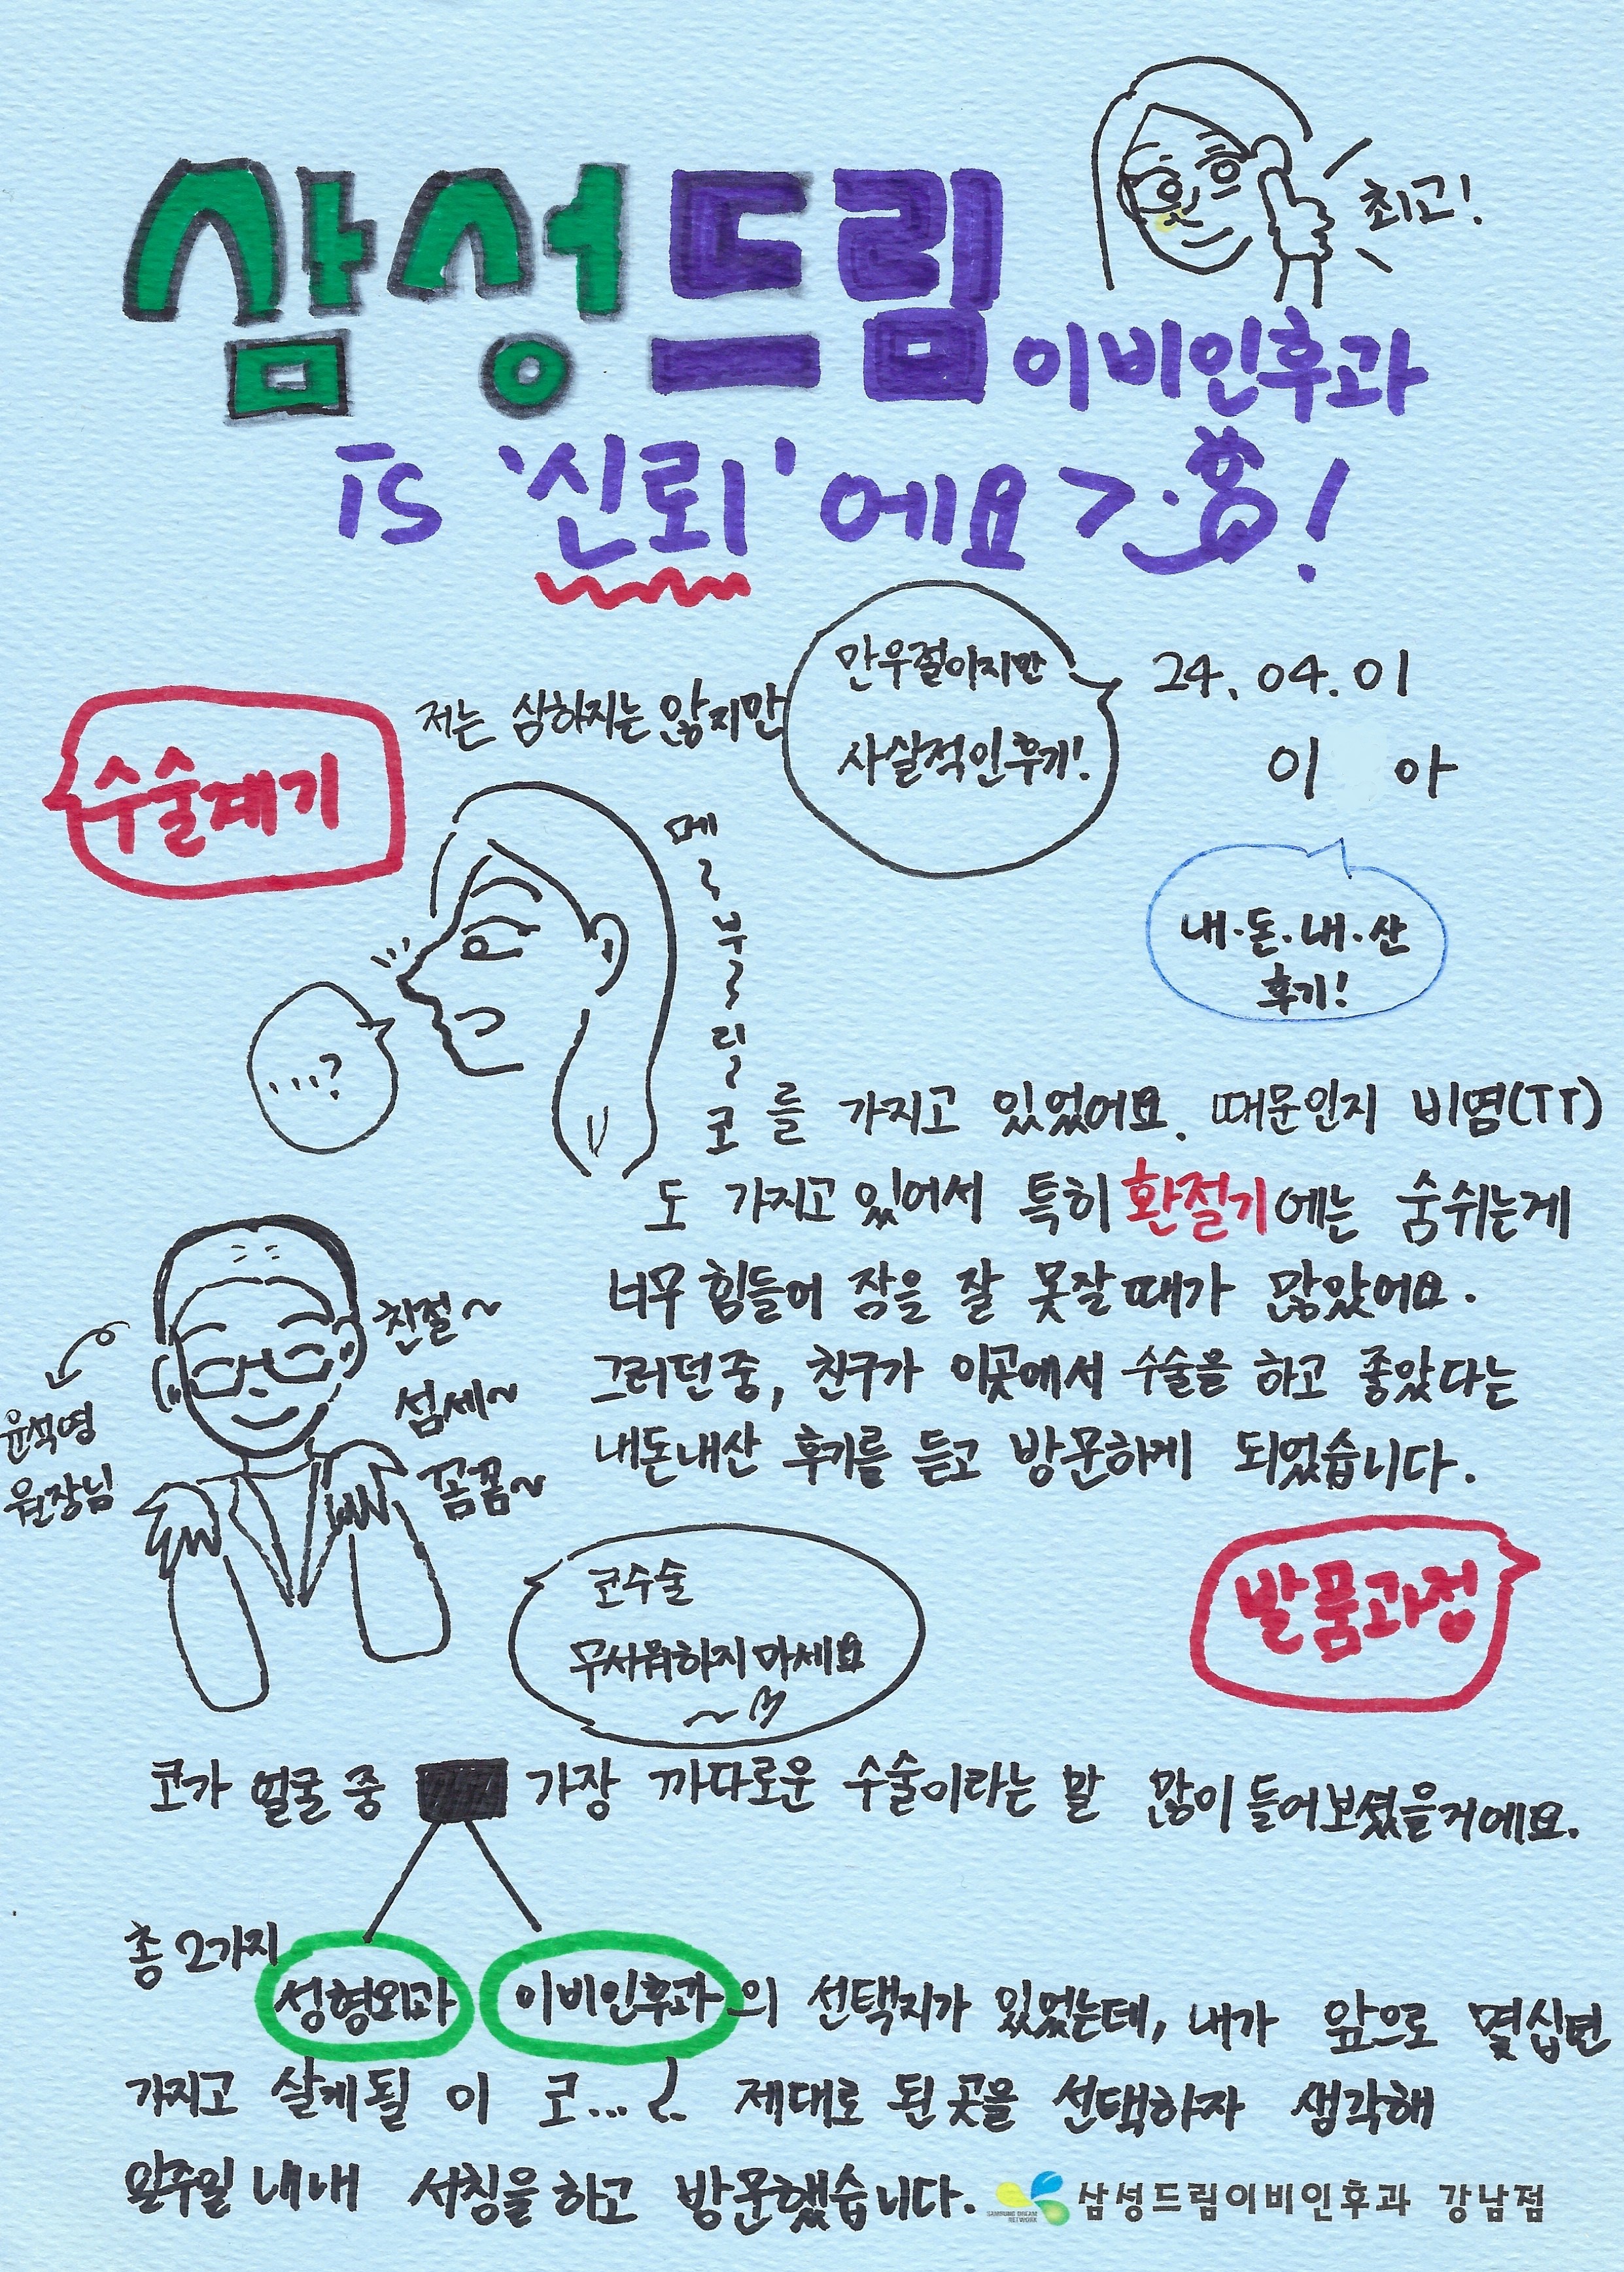 최고!
삼성드림 이비인후과
is '신뢰' 에요 > . !
만우절이지만
사실적인후기!
24. 04. 01
이 아
내·돈·내·산
후기!
수술계기
저는 심하지는 않지만
메~부~리~코를 가지고 있었어요. 때문인지 비염(TT)
...?
도 가지고 있어서 특히 환절기에는 숨쉬는게
너무 힘들어 잠을 잘 못잘때가 많았어요.
그러던중, 친구가 이곳에서 수술을 하고 좋았다는
내돈내산 후기를 듣고 방문하게 되었습니다.
윤석영
원장님
친절~
섬세~
꼼꼼~
코수술
무서워하지마세요
~
발품과정
코가 얼굴 중 가장 까다로운 수술이라는 말 많이 들어보셨을거에요.
총 2가지
성형외과 이비인후과의 선택지가 있었는데, 내가 앞으로 몇십년
가지고 살게될 이 코... 제대로 된 곳을 선택하자 생각해
일주일 내내 서칭을 하고 방문했습니다.
SAMSUNG DREAM
NETWORK
삼성드림이비인후과 강남점